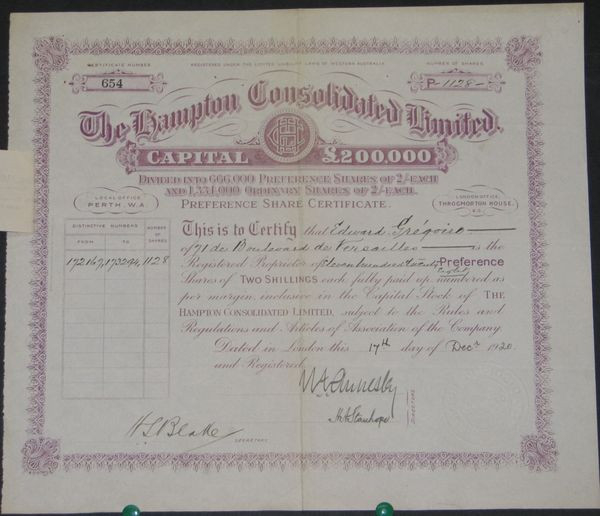 CERTIFICATE NUMBER.
REGISTERED UNDER THE LIMITED LIABILITY LAWS OF WESTERN AUSTRALIA
NUMBER OF SHARES.
654
P-1128-
The Hampton Consolidated Limited.
CAPITAL £200,000
DIVIDED INTO 666,000 PREFERENCE SHARES OF 2/- EACH
AND 1,334,000 ORDINARY SHARES OF 2/- EACH.
PREFERENCE SHARE CERTIFICATE.
LOCAL OFFICE
PERTH, W.A.
LONDON OFFICE,
THROGMORTON HOUSE,
E.C.
DISTINCTIVE NUMBERS
NUMBER OF SHARES
FROM
TO
172167
173294
1128
This is to Certify that Edward Grégoire
of 71 de Boulevard de Versailles is the
Registered Proprietor of Eleven hundred twenty Eight Preference
Shares of TWO SHILLINGS each fully paid up numbered as
per margin inclusive in the Capital Stock of THE
HAMPTON CONSOLIDATED LIMITED, subject to the Rules and
Regulations and Articles of Association of the Company
Dated in London this 17th day of Decr 1920.
and Registered
DIRECTORS
H. H. Stanhope
H S Blake
SECRETARY.